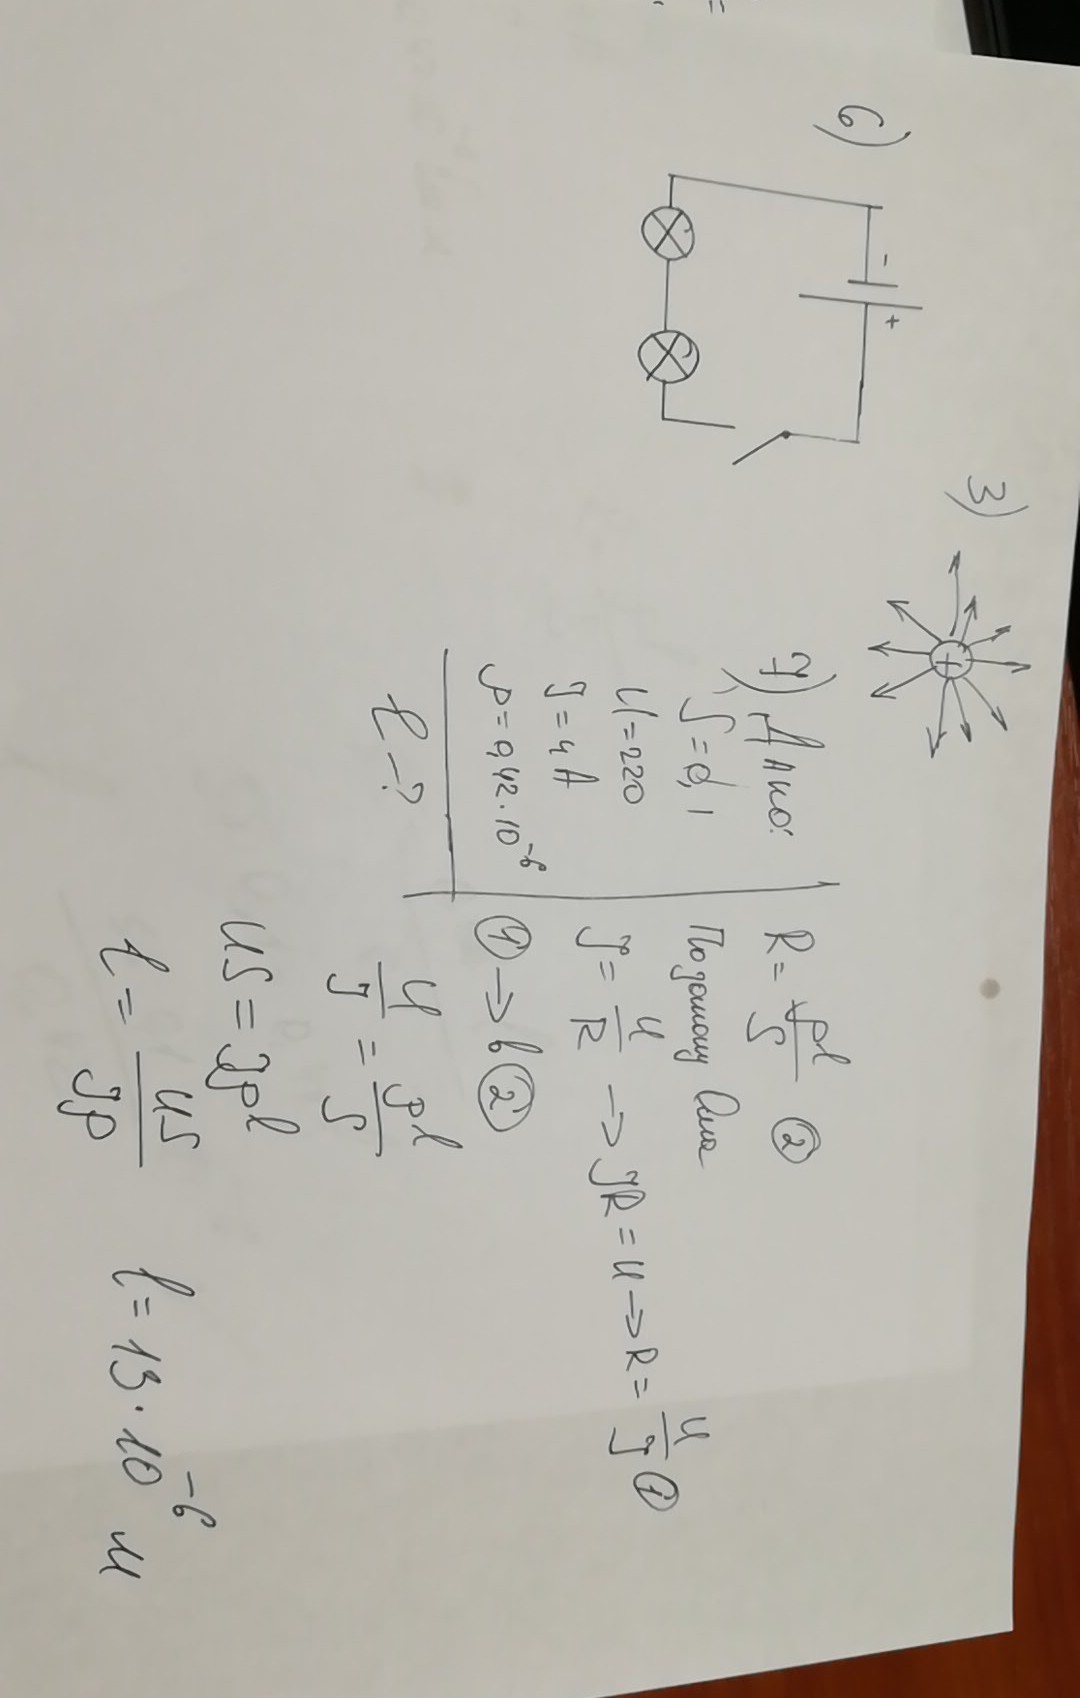 6)
- +
3)
+
7) Дано:
S = 0,1
U = 220
J = 4 А
ρ = 0,42 · 10⁻⁶
l - ?
R = ρl/S ②
По закону Ома
J = U/R → JR = U → R = U/J ①
① → в ②
U/J = ρl/S
US = Jρl
l = US/Jρ
l = 13 · 10⁻⁶ м